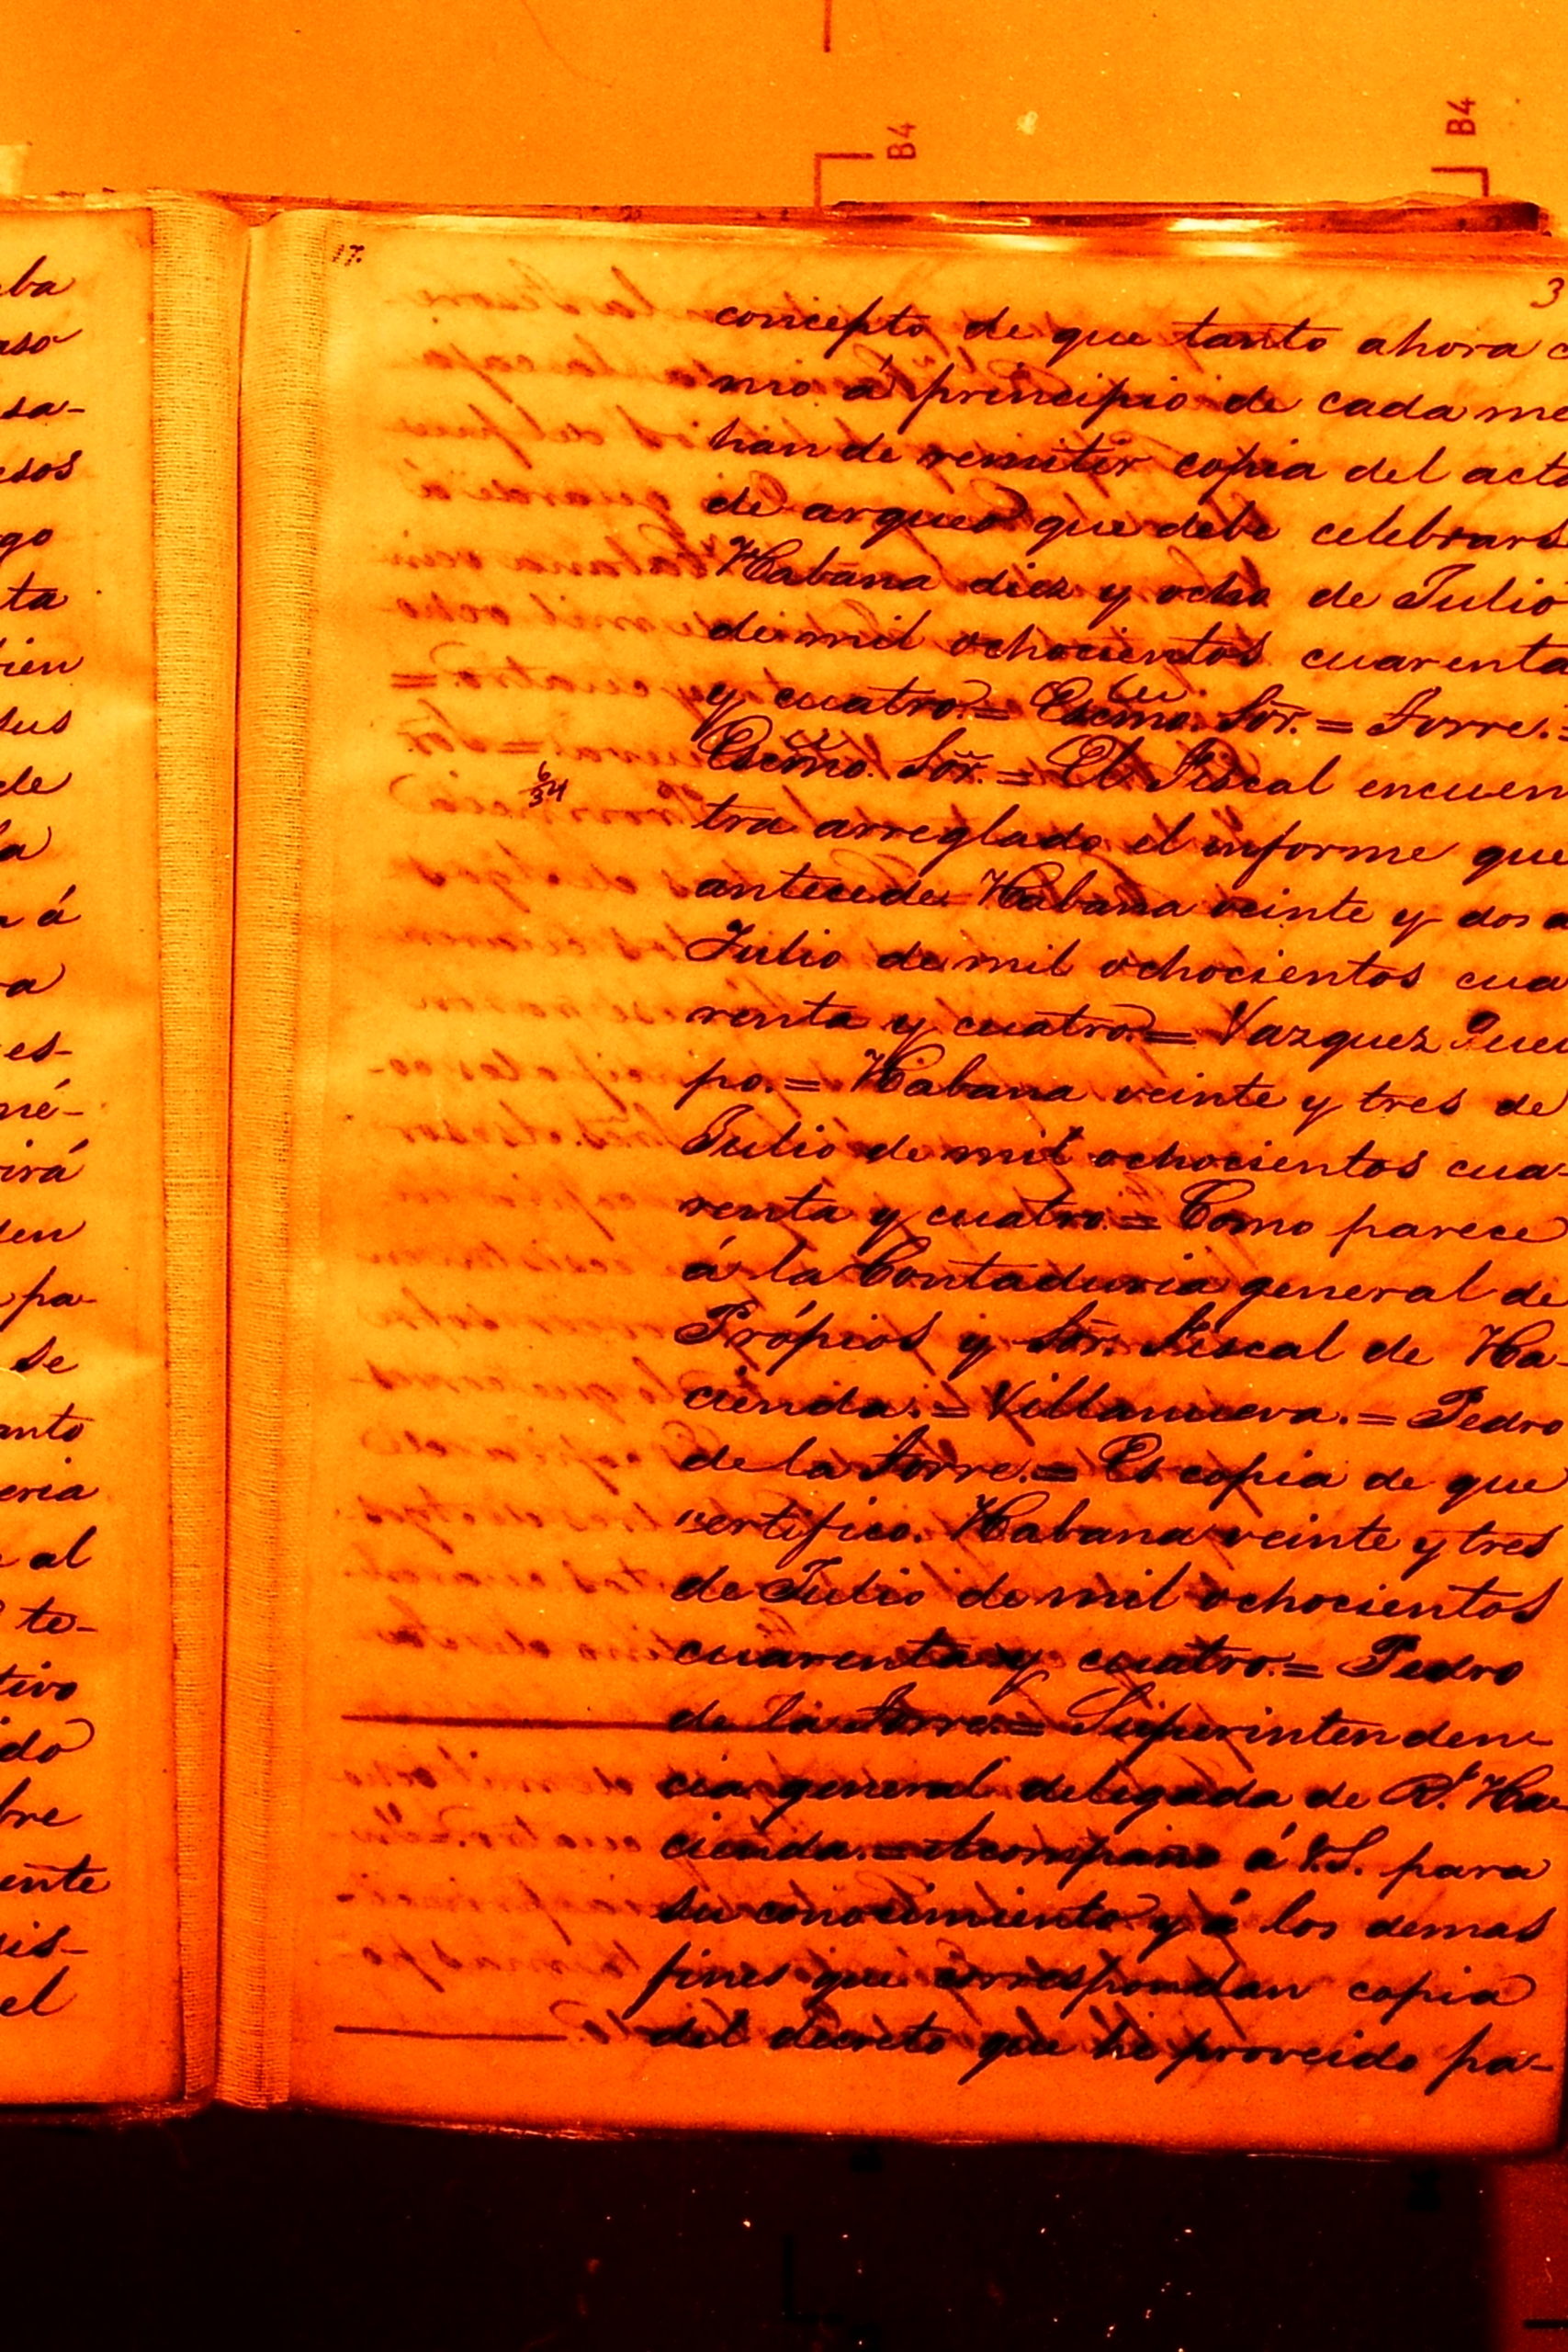 B4
B4
aba
aso
sa-
esos
go
ta
bien
sus
de
la
a á
ra
es-
mé-
irá
den
pa-
se
anto
eria
al
te-
tivo
do
bre
ente
sis-
el
17.
3
concepto de que tanto ahora c
mo á principio de cada me
han de remitir copia del acta
de arqueo que debe celebrars
Habana diez y ocho de Julio
de mil ochocientos cuarenta
y cuatro.= Escmo. Sōr. = Torre.=
Escmo. Sōr. = El Fiscal encuen
6
34
tra arreglado el informe que
antecede. Habana veinte y dos d
Julio de mil ochocientos cua
renta y cuatro.= Vazquez Quei
po.= Habana veinte y tres de
Julio de mil ochocientos cua-
renta y cuatro.= Como parece
á la Contaduria general de
Própios y Sōr. Fiscal de Ha-
cienda.= Villanueva.= Pedro
de la Torre.= Es copia de que
certifico. Habana veinte y tres
de Julio de mil ochocientos
cuarenta y cuatro.= Pedro
de la Torre.= Superintenden-
cia general delegada de Rl. Ha-
cienda.= Acompaño á V.S. para
su conocimiento y á los demas
fines que correspondan copia
del decreto que he proveido pa-